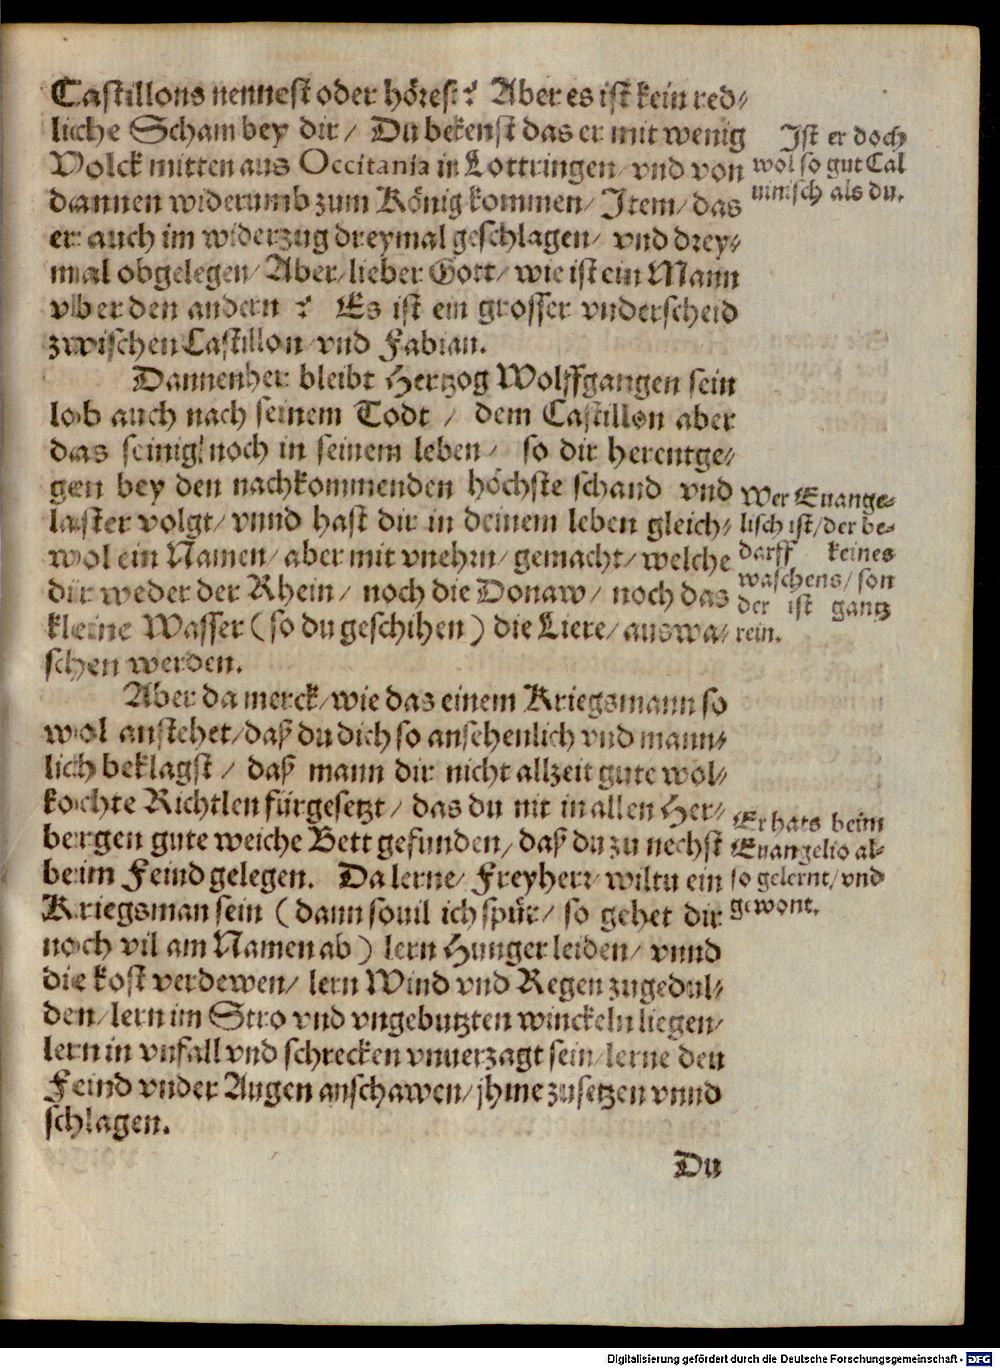 Castillons nennest oder hörest? Aber es ist kein red-
liche Scham bey dir / Du bekenst das er mit wenig
Volck mitten aus Occitania in Lottringen / vnd von
dannen widerumb zum König kommen / Item / das
er auch im widerzug dreymal geschlagen / vnd drey-
mal obgelegen / Aber / lieber Gott / wie ist ein Mann
vber den andern ? Es ist ein grosser vnderscheid
zwischen Castillon vnd Fabian.
Ist er doch
wol so gut Cal
uinisch als du.
Dannenher bleibt Hertzog Wolffgangen sein
lob auch nach seinem Todt / dem Castillon aber
das seinig noch in seinem leben / so dir herentge-
gen bey den nachkommenden höchste schand vnd
laster volgt / vnnd hast dir in deinem leben gleich-
wol ein Namen / aber mit vnehrn / gemacht / welche
dir weder der Rhein / noch die Donaw / noch das
kleine Wasser (so du geschihen) die Liere / auswa-
schen werden.
Wer Euange-
lisch ist / der be-
darff keines
waschens / son
der ist gantz
rein.
Aber da merck / wie das einem Kriegsmann so
wol anstehet / daß du dich so ansehenlich vnd mann-
lich beklagst / daß mann dir nicht allzeit gute wol-
kochte Richtlen fürgesetzt / das du nit in allen Her-
bergen gute weiche Bett gefunden / daß du zu nechst
beim Feind gelegen. Da lerne / Freyherr / wiltu ein
Kriegsman sein (dann souil ich spür / so gehet dir
noch vil am Namen ab) lern Hunger leiden / vnnd
die kost verdewen / lern Wind vnd Regen zugedul-
den / lern im Stro vnd vngebutzten winckeln liegen /
lern in vnfall vnd schrecken vnuerzagt sein / lerne den
Feind vnder Augen anschawen / jhme zusetzen vnnd
schlagen.
Er hats beim
Euangelio al-
so gelernt / vnd
gewont.
Du
Digitalisierung gefördert durch die Deutsche Forschungsgemeinschaft - DFG